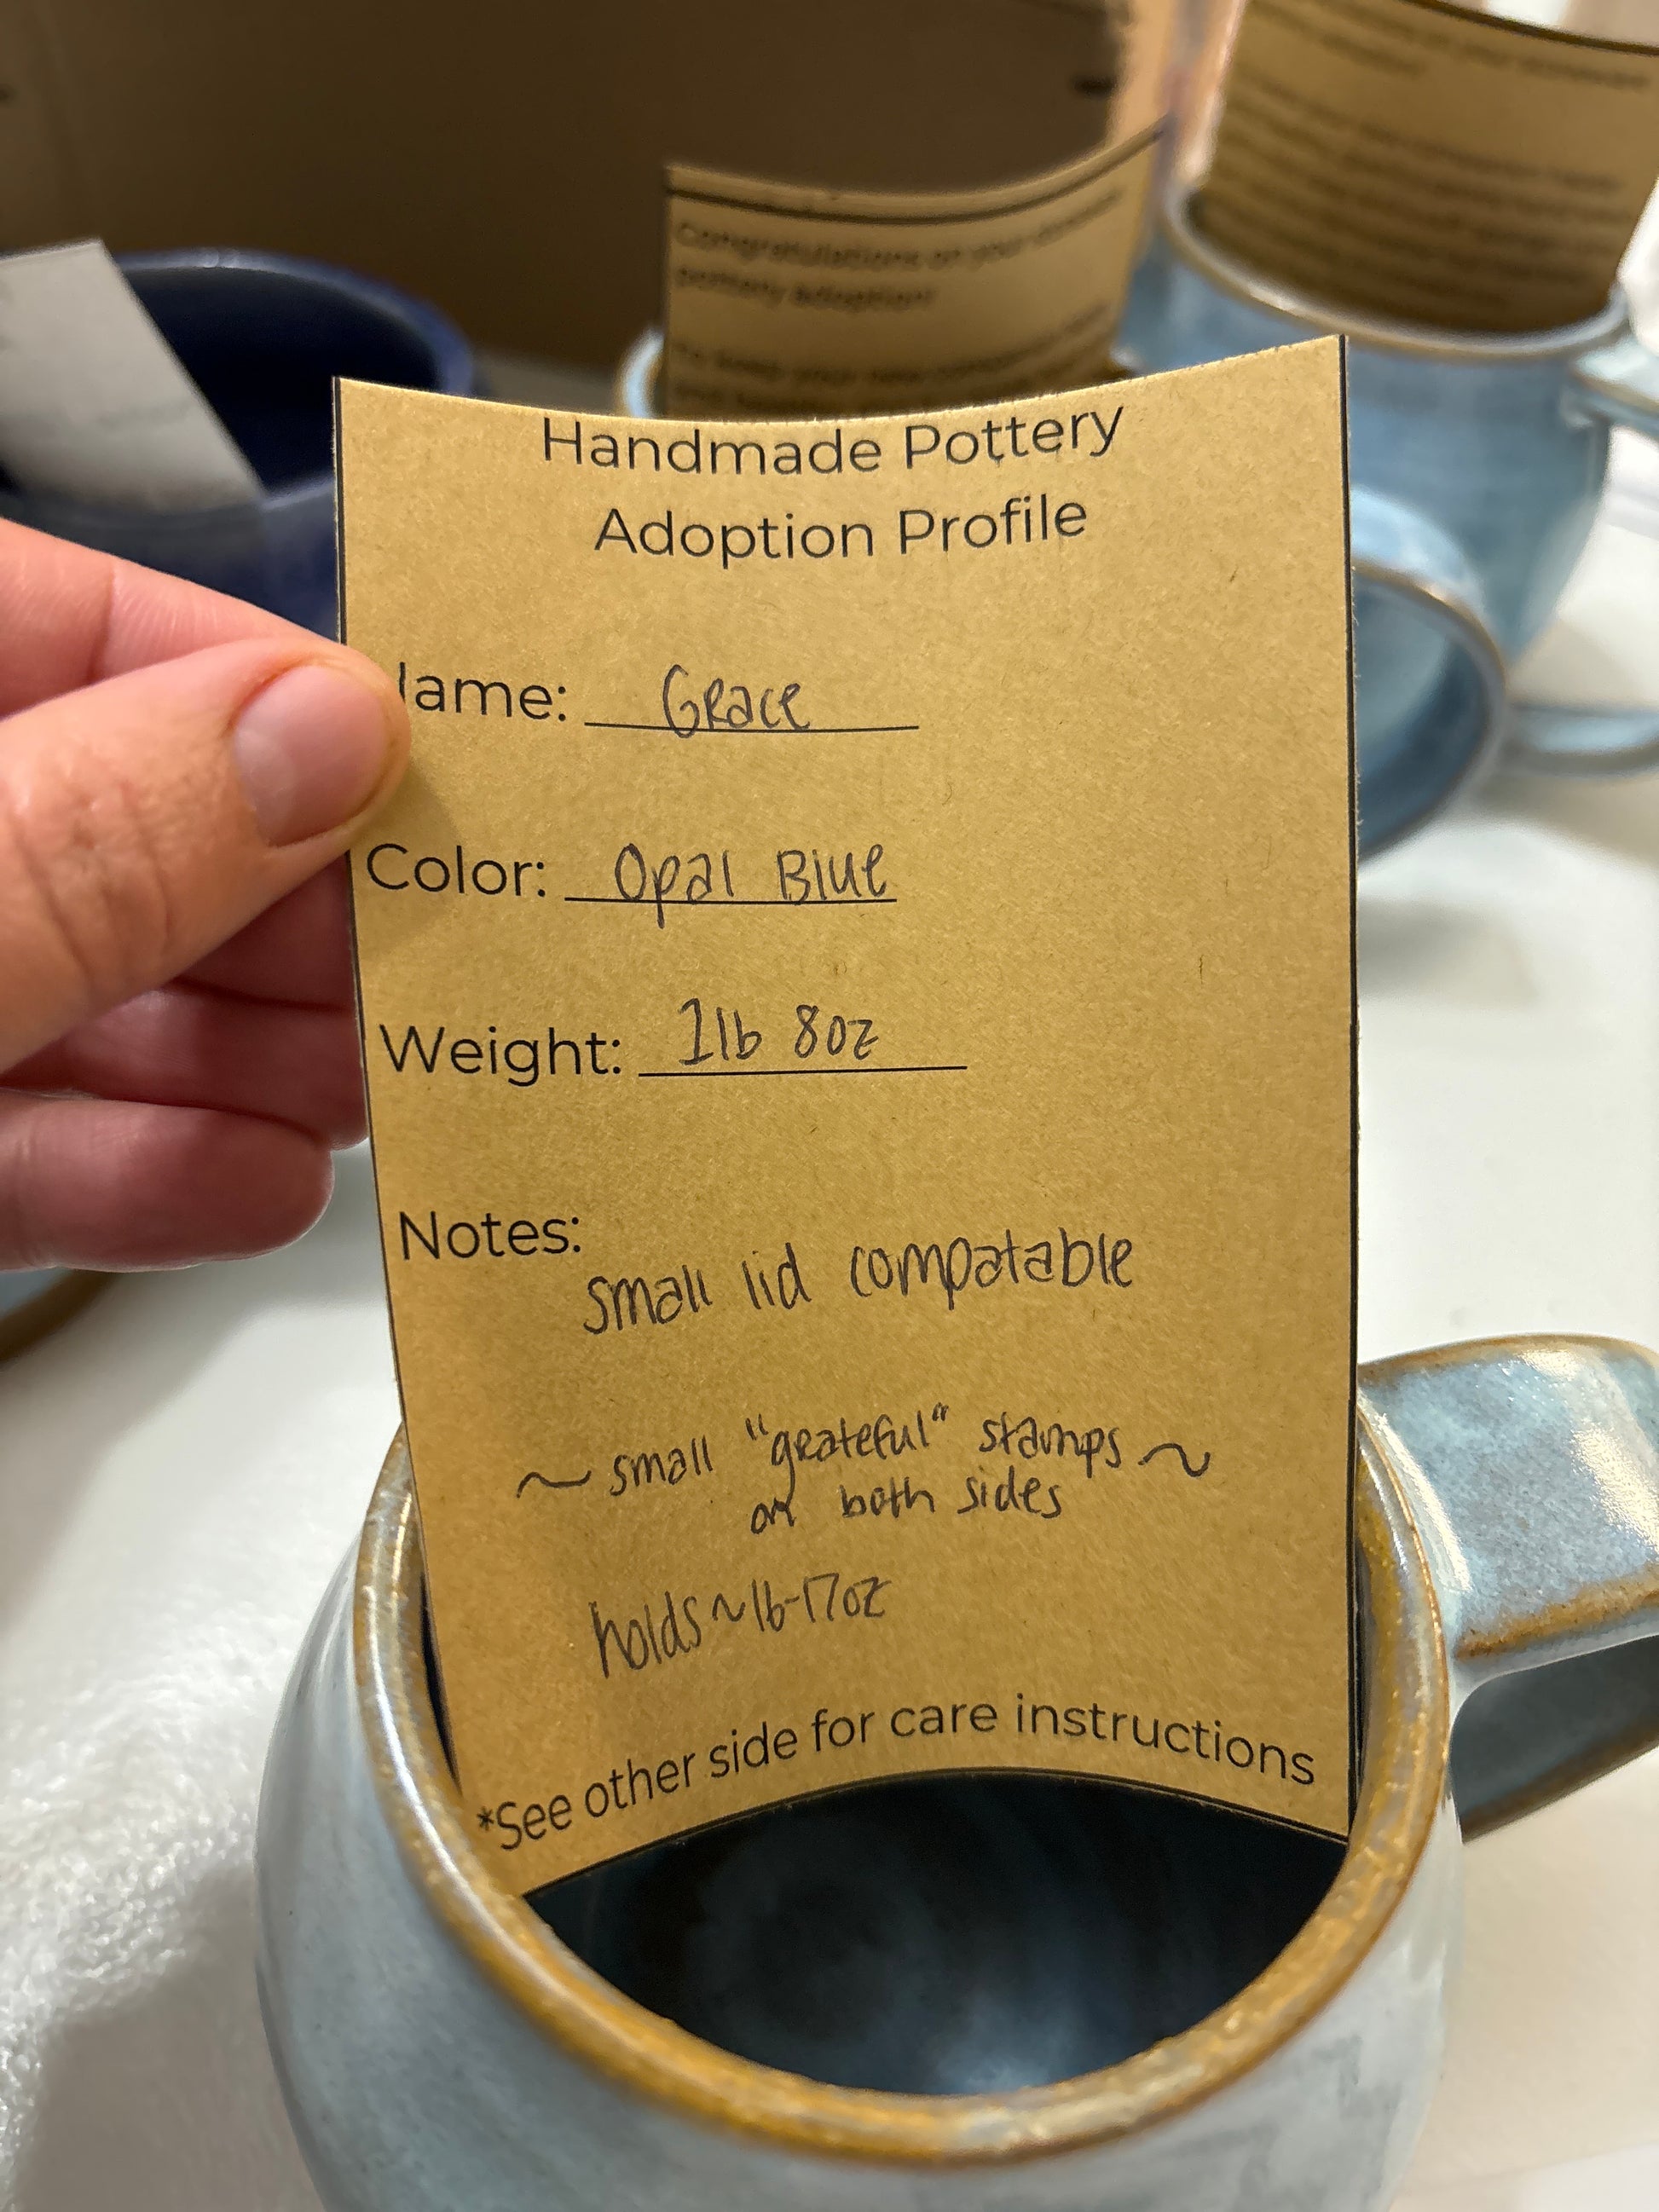 Congratulations on your
pottery adoption!
Handmade Pottery
Adoption Profile
Name: Grace
Color: Opal Blue
Weight: 1lb 8oz
Notes:
small lid compatable
~ small "grateful" stamps ~
on both sides
holds ~16-17oz
*See other side for care instructions